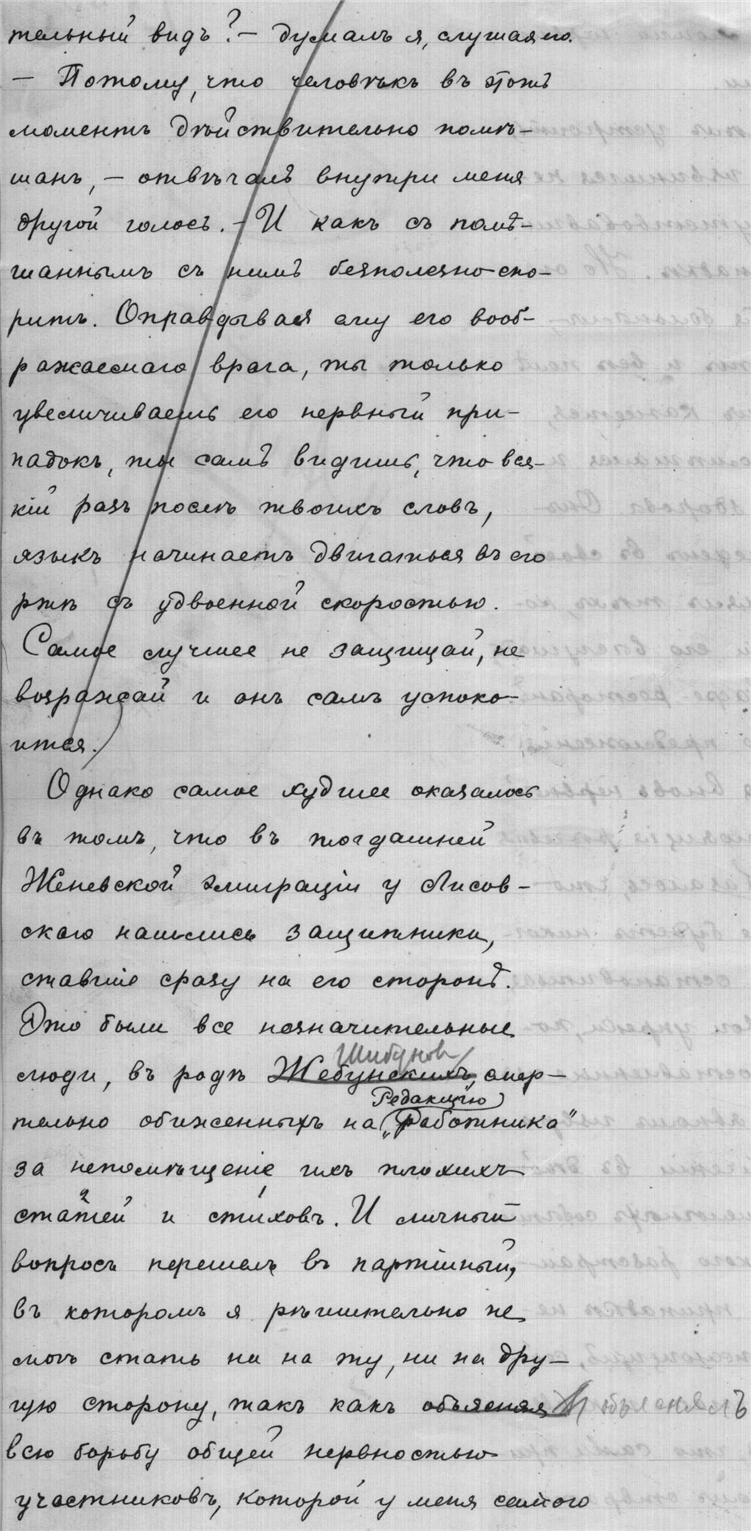 тельный видъ? – думалъ я, слушая его.
– Потому, что человѣкъ въ этотъ
моментъ дѣйствительно помѣ-
шанъ, – отвѣчалъ внутри меня
другой голосъ. – И какъ съ помѣ-
шаннымъ съ нимъ безполезно спо-
рить. Оправдывая ему его вооб-
ражаемаго врага, ты только
увеличиваешь его нервный при-
падокъ, ты самъ видишь, что вся-
кій разъ послѣ твоихъ словъ,
языкъ начинаетъ двигаться въ его
ртѣ съ удвоенной скоростью.
Самое лучшее не защищай, не
возражай и онъ самъ успоко-
ится.)
Однако самое худшее оказалось
въ томъ, что въ тогдашней
Женевской эмиграціи у Лисов-
скаго нашлись защитники,
ставшіе сразу на его сторонѣ.
Это были все незначительные
Шибунов
люди, въ родѣ Жебунскихъ, смер-
Редакцію
тельно обиженныхъ на „Работника"
за непомѣщеніе ихъ плохихъ
статей и стиховъ. И личный
вопросъ перешелъ въ партійный,
въ которомъ я рѣшительно не
могъ стать ни на ту, ни на дру-
гую сторону, такъ какъ объясняя объяснялъ
всю борьбу общей нервностью
участниковъ, которой у меня самого